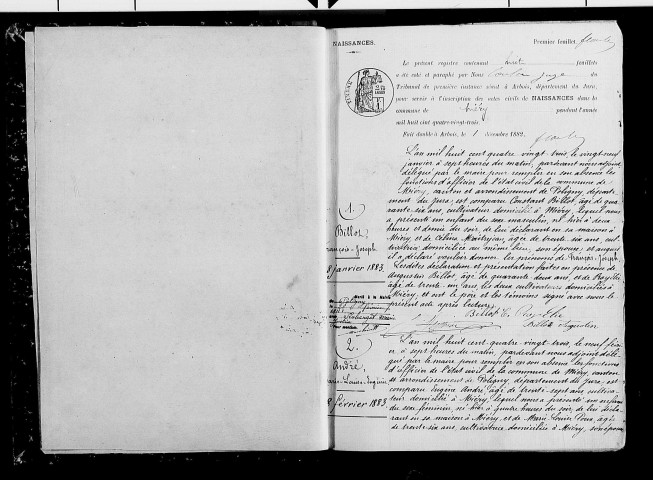 NAISSANCES.
Premier feuillet.
Le présent registre contenant huit feuillets
a été coté et paraphé par Nous juge du
Tribunal de première instance séant à Arbois, département du Jura,
pour servir à l'inscription des actes civils de NAISSANCES dans la
commune de Miéry pendant l'année
mil huit cent quatre-vingt-trois.
Fait double à Arbois, le 1 décembre 1882.
L'an mil huit cent quatre vingt-trois, le vingt neuf
janvier à sept heures du matin, pardevant nous adjoint
délégué par le maire pour remplir en son absence les
fonctions d'officier de l'état civil de la commune de
Miéry, canton et arrondissement de Poligny, départe-
ment du Jura, est comparu Constant Billot, âgé de qua-
rante-six ans, cultivateur domicilié à Miéry, lequel nous
a présenté un enfant du sexe masculin, né hier à deux
heures et demie du soir, de lui déclarant en sa maison à
Miéry et de Céline Maitrejean, âgée de trente-six ans, cul-
tivatrice domiciliée au même lieu, son épouse, et auquel
il a déclaré vouloir donner les prénoms de François-Joseph.
Lesdites déclaration et présentation faites en présence de
Augustin Billot, âgé de quarante deux ans, et de
âgé de trente-un ans, les deux cultivateurs domiciliés à
Miéry, et ont le père et les témoins signé avec nous le
présent acte après lecture.
Billot
Billot Augustin
1.
Billot
François-Joseph
28 janvier 1883.
Marié à la mairie
Poligny
2.
André,
Marie-Louise-Eugénie
8 février 1883
L'an mil huit cent quatre-vingt-trois, le neuf févri-
er à sept heures du matin, pardevant nous adjoint délé-
gué par le maire pour remplir en son absence les fonctions
d'officier de l'état civil de la commune de Miéry, canton
et arrondissement de Poligny, département du Jura, est
comparu Eugène André, âgé de trente-sept ans, cultiva-
teur domicilié à Miéry, lequel nous a présenté un enfant
du sexe féminin, né hier à quatre heures du soir, de lui décla-
rant en sa maison à Miéry, et de Marie Louise âgée
de trente-six ans, cultivatrice domiciliée à Miéry, son épouse